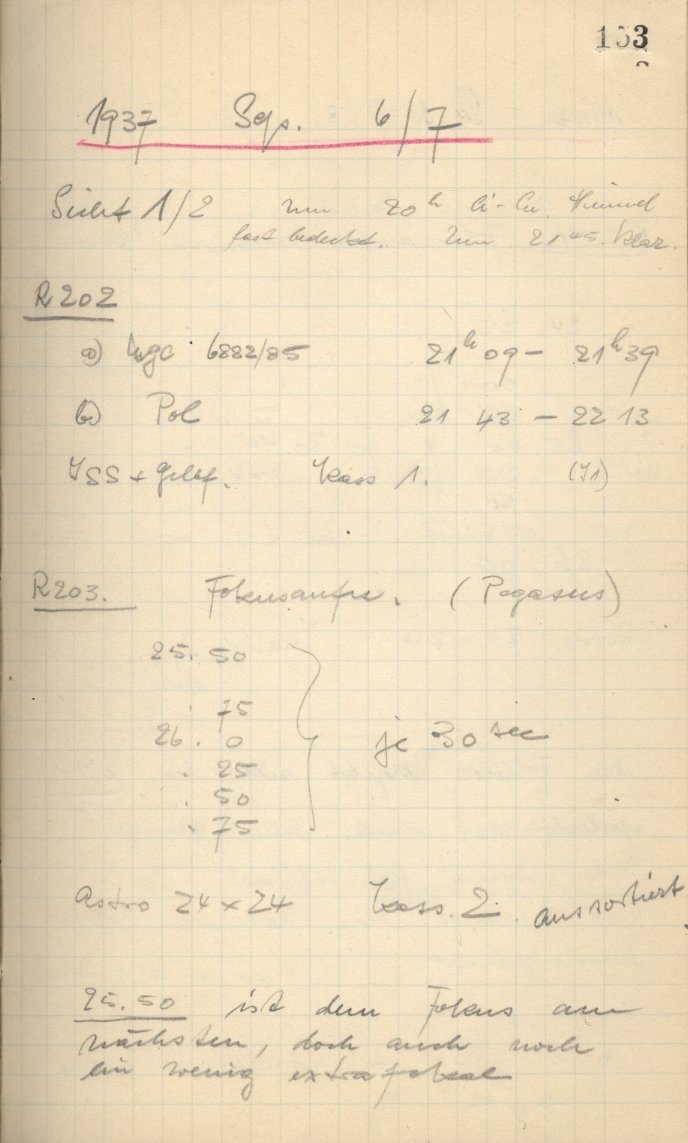 153
1937 Sep. 6/7
Sicht 1/2 um 20h Ci-Cu. Himmel
fast bedeckt. Um 21.45 klar.
R202
a) Ngc 6882/85 21h 09 – 21h 39
b) Pol 21 43 – 22 13
ISS + Gelbf. Kass 1. (J1)
R203. Fokusaufn. (Pegasus)
25.50
. 75
26. 0
. 25
. 50
. 75
je 30 sec
Astro 24 x 24 Kass. 2. aussortiert
25.50 ist dem Fokus am
nächsten, doch auch noch
ein wenig extrafokal